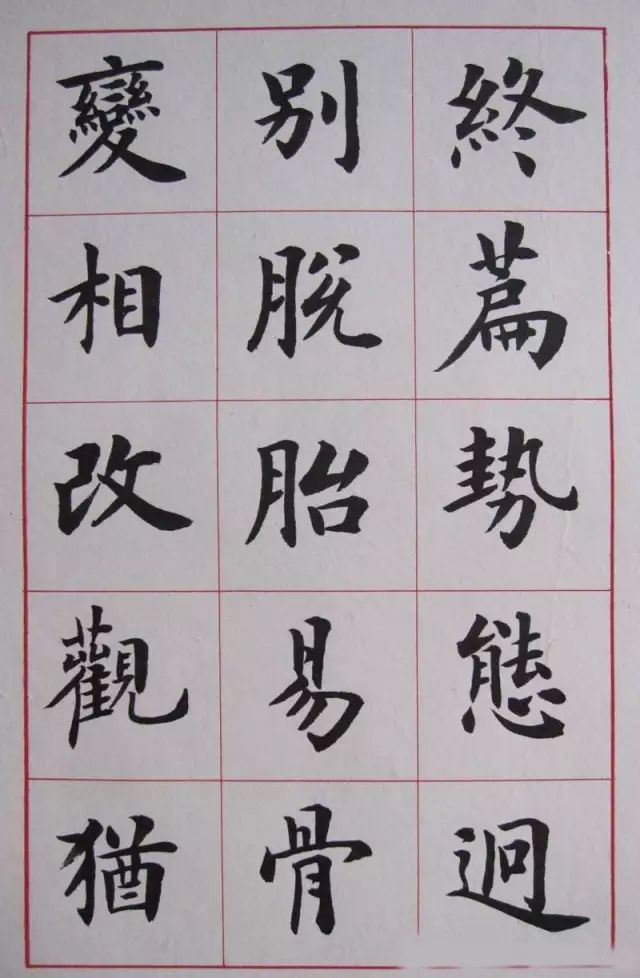 終篇勢態迥
别脫胎易骨
變相改觀猶